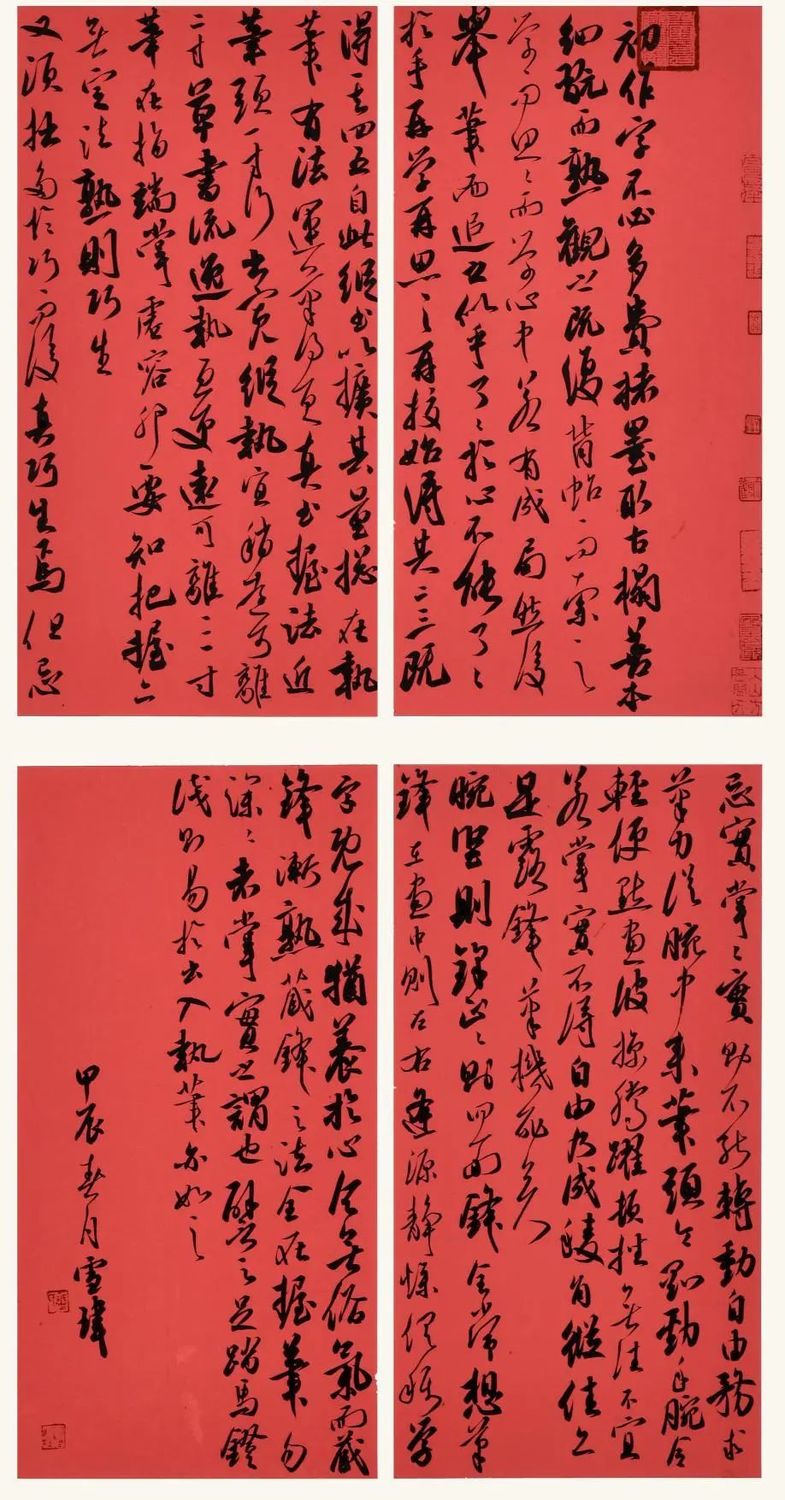 初作字不必多費楮墨取古榻善本
細玩而熟觀之既復背帖而索之
学而思〻而学心中若有成局然後
舉筆而追之似乎了〻於心不能了〻
於手再学再思〻之再挍始得其二三既
得其四五自此縱書以擴其量總在執
筆有法運筆得宜真書握法近
筆頭一寸行書寬縱執宜稍遠可離
二寸草書流逸執宜更遠可離三寸
筆在指端掌虛容卵要知把握亦
無定法熟則巧生
又須拙多於巧而後真巧生焉但忌
忌實掌〻實則不能轉動自由務求
筆力從腕中來筆頭令剛勁手腕令
輕便點畫波掠騰躍頓挫無往不宜
若掌實不得自由乃成稜角縱佳亦
是露鋒筆機死矣
腕竪則鋒正〻則四面鋒全常想筆
鋒在畫中則左右逢源靜燥俱稱学
字既成猶養於心令無俗氣而藏
鋒漸熟藏鋒之法全在握筆勿
深〻者掌實之謂也譬之足踏馬鐙
淺則易於出入執筆亦如之
甲辰春月雪瑋